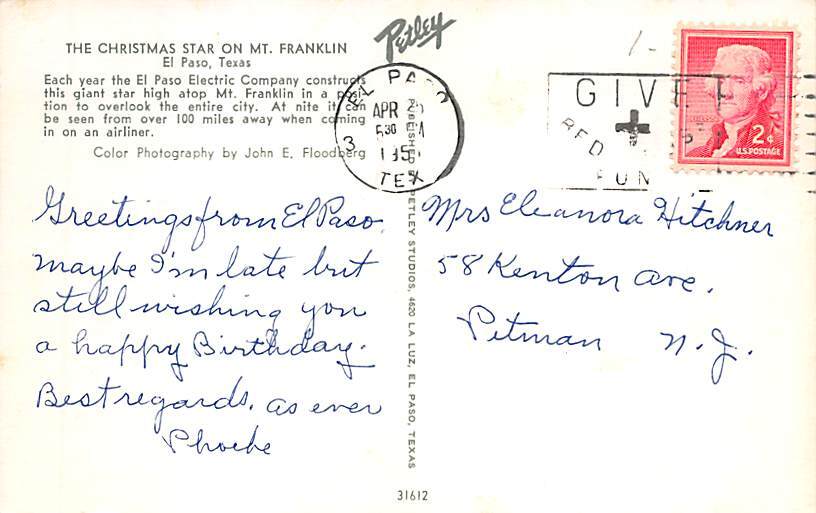 Petley
THE CHRISTMAS STAR ON MT. FRANKLIN
El Paso, Texas
Each year the El Paso Electric Company constructs
this giant star high atop Mt. Franklin in a posi-
tion to overlook the entire city. At nite it can
be seen from over 100 miles away when coming
in on an airliner.
Color Photography by John E. Floodberg
EL PASO
APR
5 30 M
195
3
TEX
GIVE
RED
FUN
2¢
U.S. POSTAGE
1-
Greetings from El Paso.
Maybe I'm late but
still wishing you
a happy Birthday.
Best regards. as ever
Phoebe
PUBLISHED BY PETLEY STUDIOS, 4620 LA LUZ, EL PASO, TEXAS
Mrs Eleanora Hitchner
58 Kenton ave.
Pitman N.J.
31612